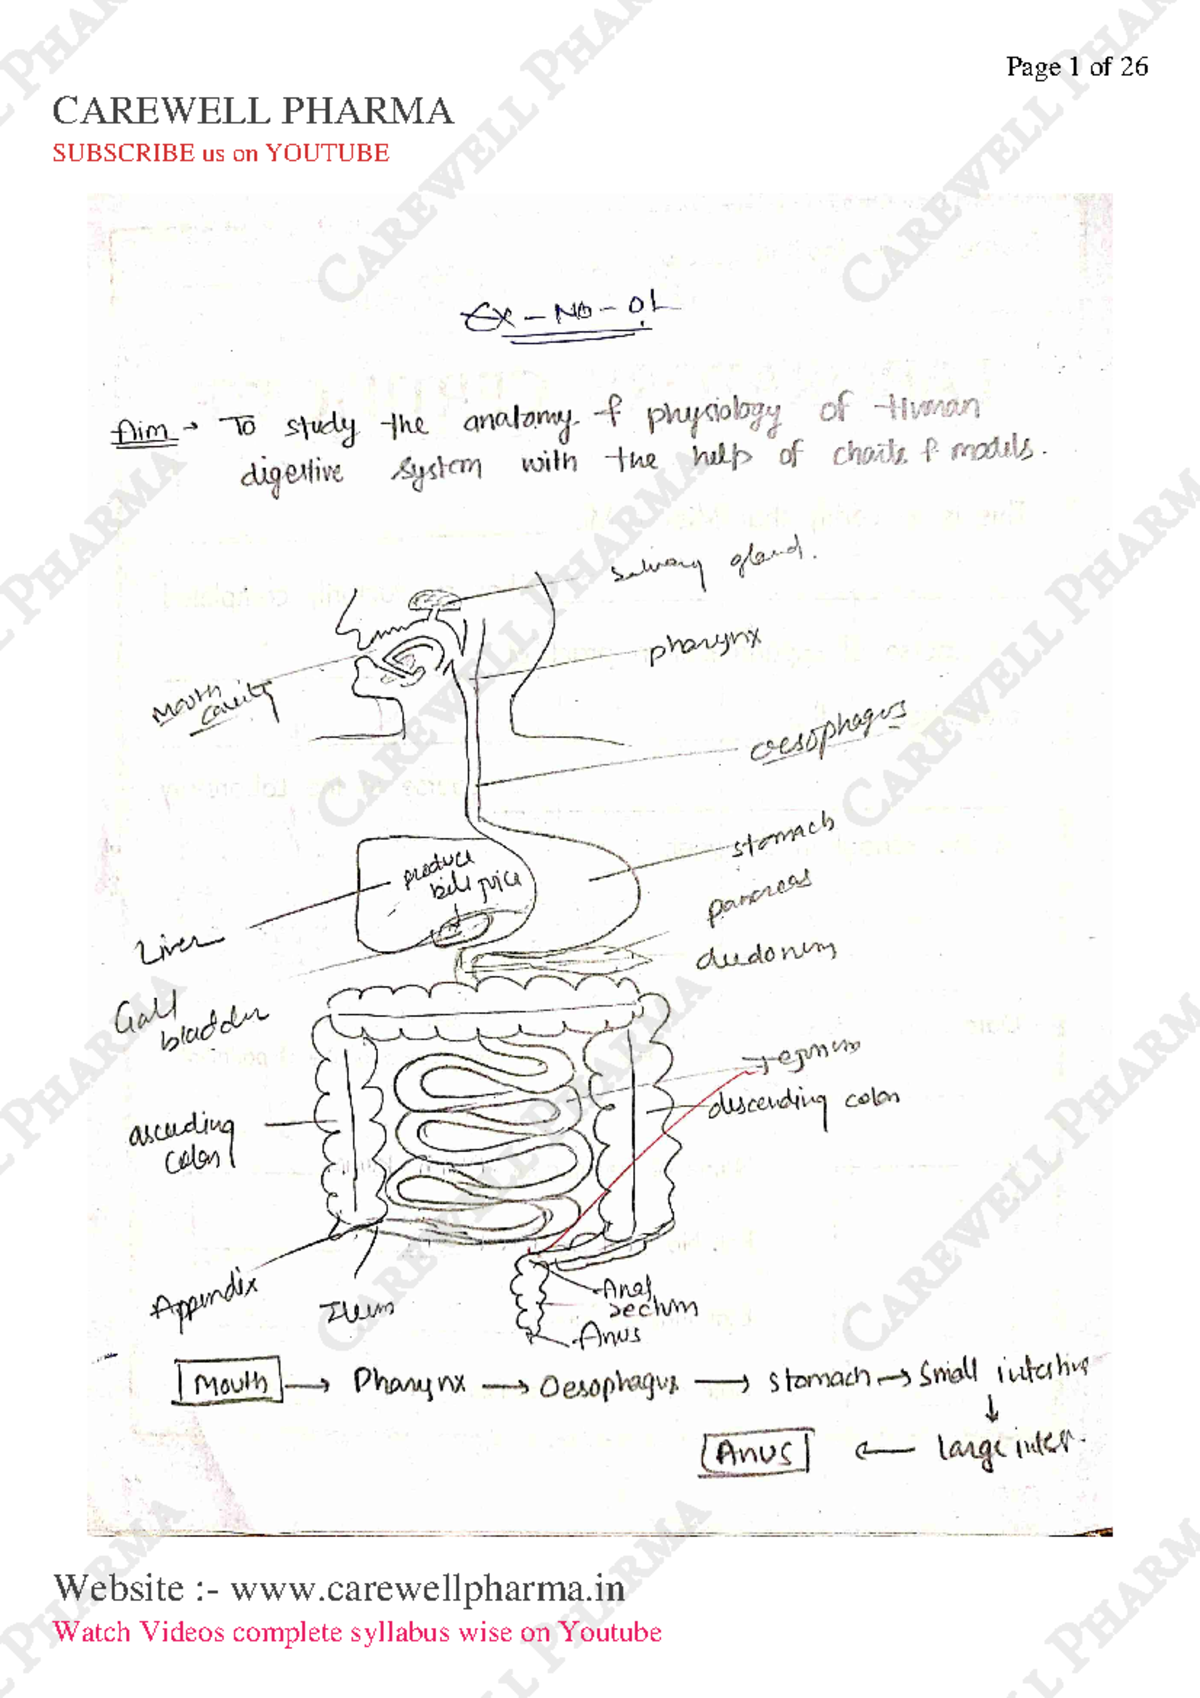 Page 1 of 26
CAREWELL PHARMA
SUBSCRIBE us on YOUTUBE
Ex-No-01
Aim → To study the anatomy & physiology of Human
digestive system with the help of charts & models.
salivary gland.
pharynx
mouth
cavity
oesophagus
stomach
produce
bile juice
pancreas
Liver
duedonum
Gall
bladder
descending colon
ascending
colon
Appendix
Ileum
Anal
rectum
Anus
Mouth → Pharynx → Oesophagus → stomach → Small intestine
↓
Anus ← large inter.
Website :- www.carewellpharma.in
Watch Videos complete syllabus wise on Youtube
CAREWELL PHARMA